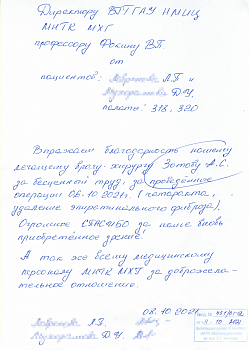 Директору ФГАУ НМИЦ
МНТК МХГ
профессору Фокину В.П.
от
пациентов: Л.П. и
Д.И.
палаты: 318, 320
Выражаем благодарность нашему
лечащему врачу-хирургу Зотову А.С.
за бесценный труд, за проведённые
операции 06.10.2021г. (катаракта,
удаление эпиретинального фиброза).
Огромное СПАСИБО за наше вновь
приобретённое зрение!
А так же всему медицинскому
персоналу МНТК МХГ за доброжела-
тельное отношение.
08.10.2021
Л.П.
Д.И.